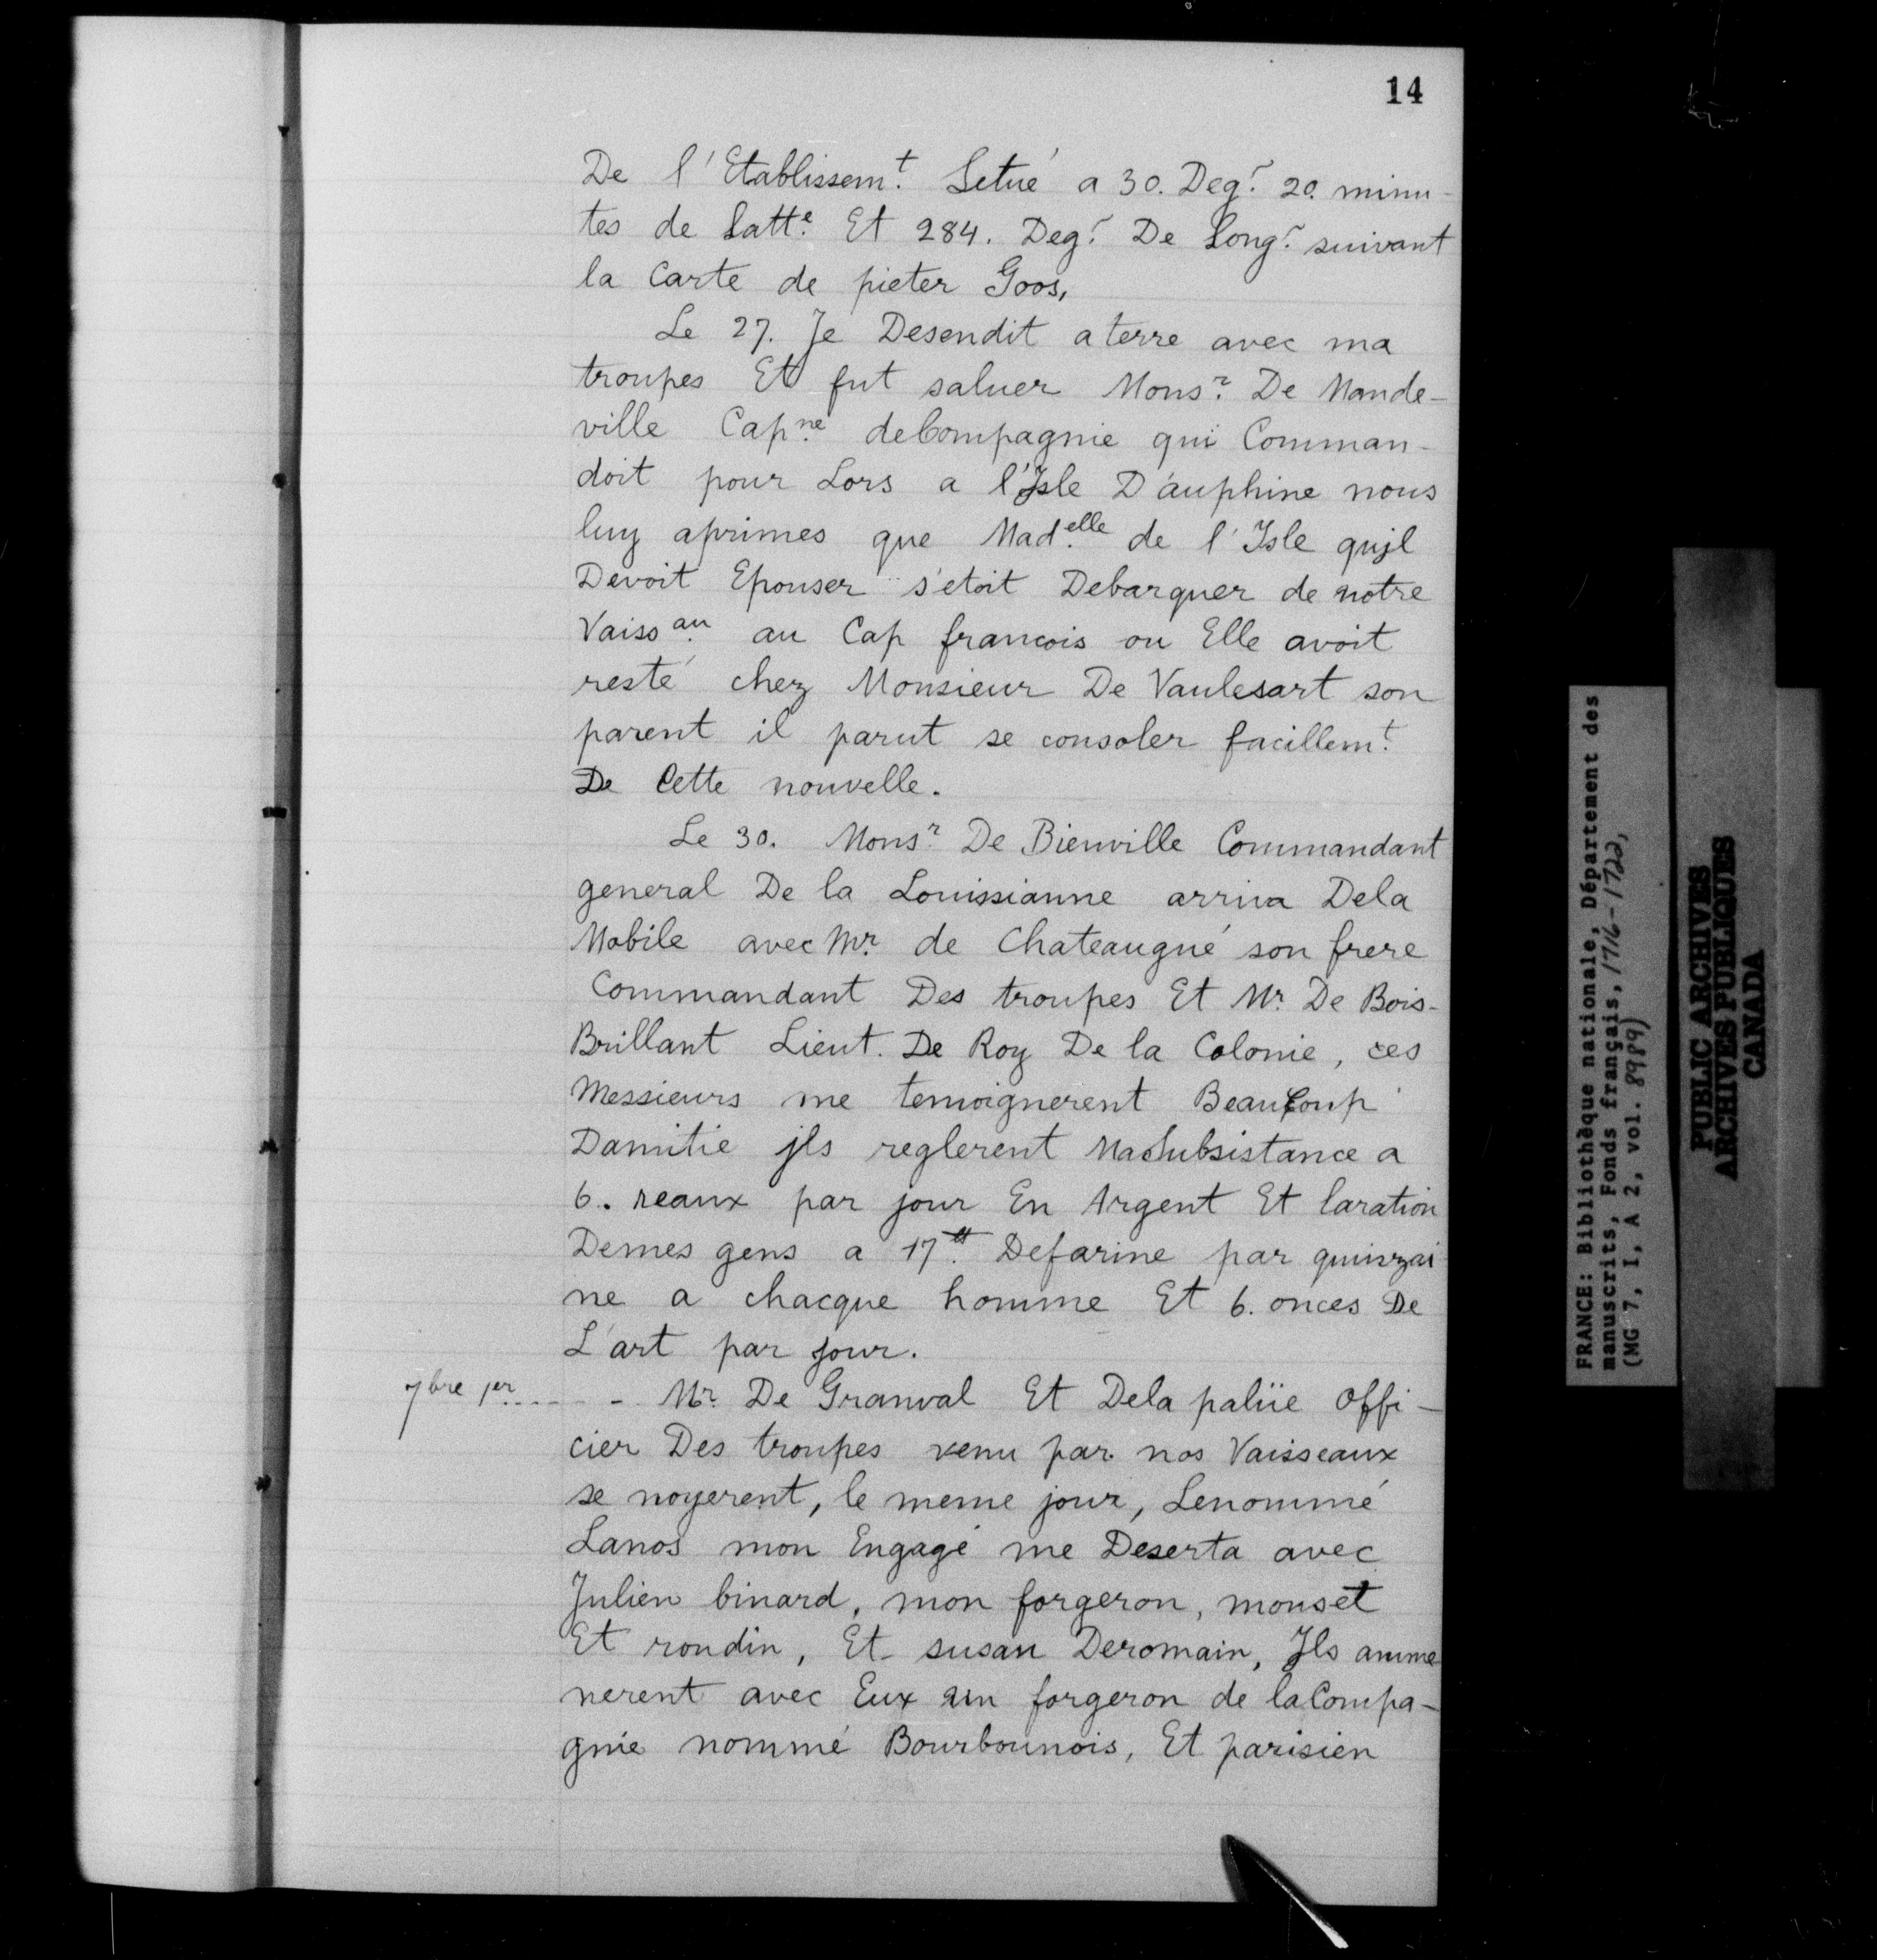 14
De l'Etablissem.t Setué a 30. Deg.r 20. minu-
tes de Latt.e Et 284. Deg.r De Long.r suivant
la Carte de pieter Goos,
Le 27. Je Desendit a terre avec ma
troupes Et fut saluer Mons.r De Mande-
ville Cap.ne de Compagnie qui Comman-
doit pour Lors a l'Isle D'auphine nous
luy aprimes que Mad.elle de l'Isle qujl
Devoit Epouser s'etoit Debarquer de notre
Vaiss.au au Cap francois ou Elle avoit
resté chez Monsieur De Vaulesart son
parent il parut se consoler facillem.t
De Cette nouvelle.
Le 30. Mons.r De Bienville Commandant
general De la Louissianne arriva Dela
Mobile avec Mr. de Chateaugué son frere
Commandant Des troupes Et Mr. De Bois-
Brillant Lieut. De Roy De la Colonie, ces
Messieurs me temoignerent BeauCoup
Damitie jls reglerent Ma Subsistance a
6. reaux par jour En Argent Et laration
Demes gens a 17.tt Defarine par quinzai
ne a chacque homme Et 6. onces De
L'art par jour.
7bre 1er.... - Mr. De Granval Et Dela paliie offi-
cier Des troupes venu par nos Vaisseaux
se noyerent, le meme jour, Lenommé
Lanos mon Engagé me Deserta avec
Julien binard, mon forgeron, mouset
Et rondin, Et susan Deromain, Jls amme
nerent avec Eux un forgeron de la Compa-
gnie nommé Bourbounois, Et parisien
FRANCE: Bibliothèque nationale, Département des
manuscrits, Fonds français, 1716-1722,
(MG 7, I, A 2, vol. 8989)
PUBLIC ARCHIVES
ARCHIVES PUBLIQUES
CANADA